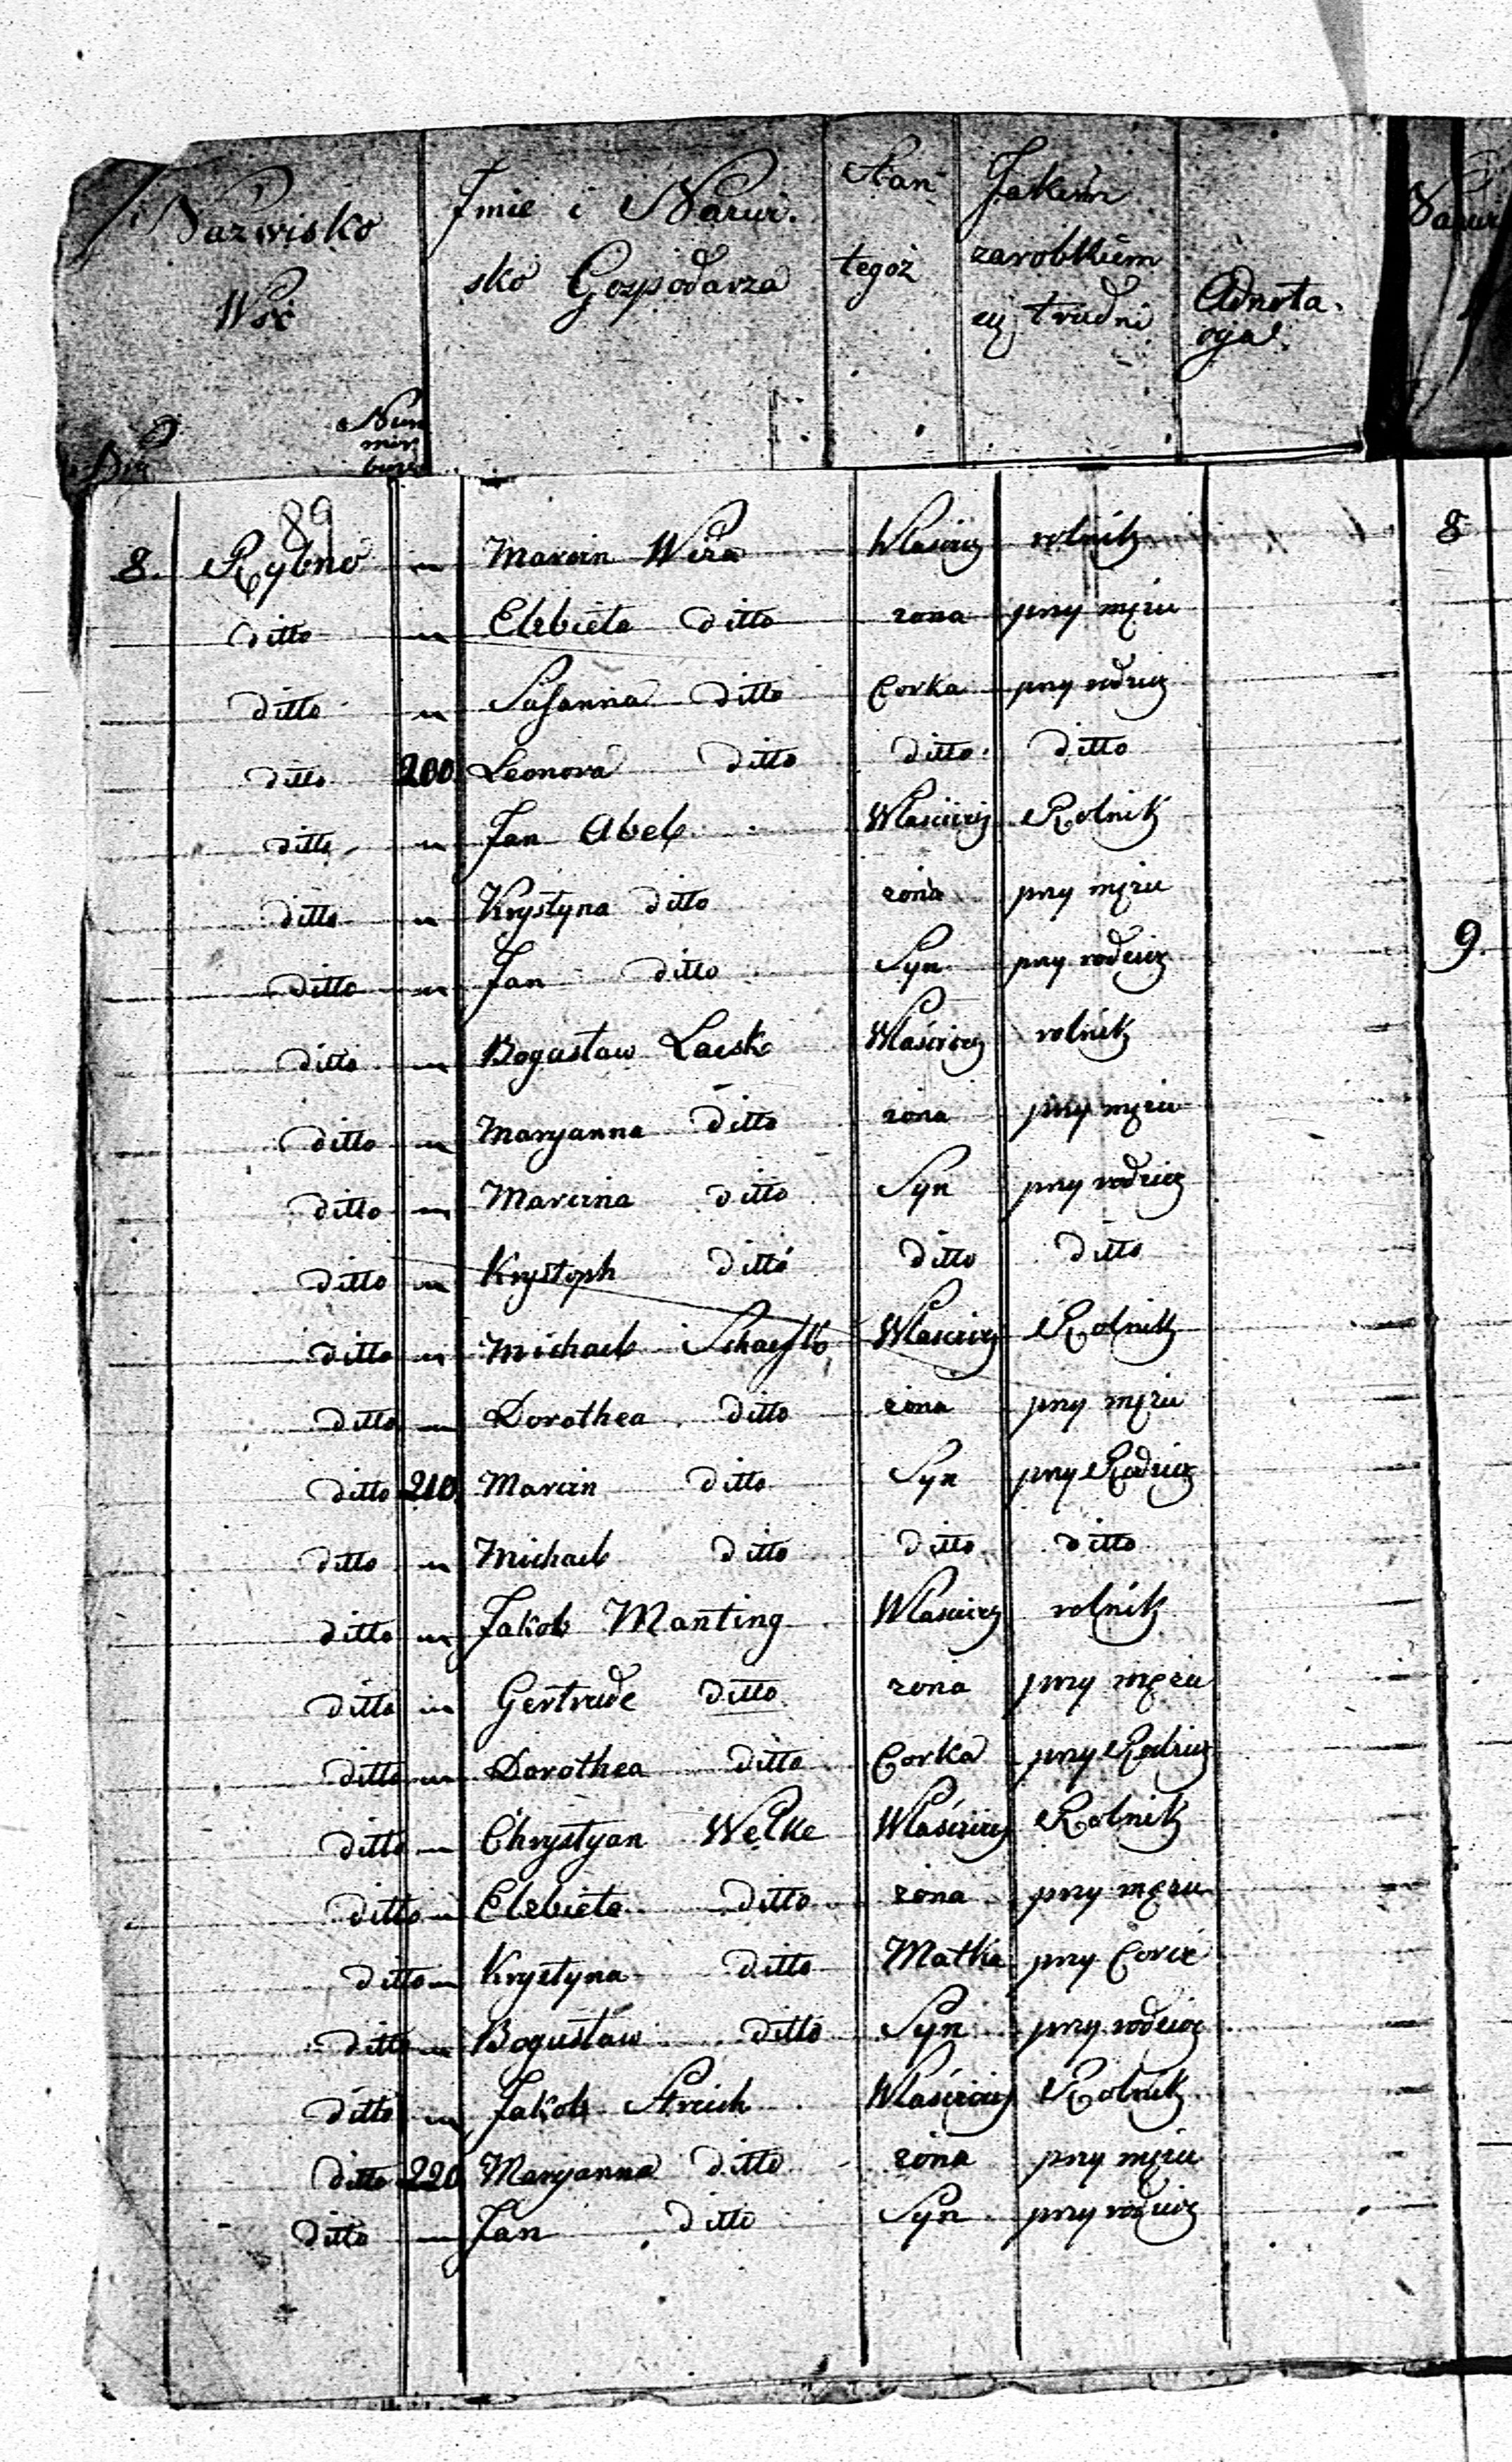 Nazwisko Wsi
Num
Imie i Nazwi-
sko Gospodarza
Stan
tegoż
Jakiem
zarobkiem
się trudni
Adnota-
cyja
89
8. Rybno " Marcin Wira Właściciel rolnik 8
ditto " Elzbieta ditto zona przy mężu
ditto " Susanna ditto Corka przy rodzicz
ditto 200 Leonora ditto ditto ditto
ditto " Jan Abel Właściciel Rolnik
ditto " Krystyna ditto zona przy mężu
ditto " Jan ditto Syn przy rodzicz 9.
ditto " Bogusław Laesk Właściciel rolnik
ditto " Maryanna ditto zona przy mężu
ditto " Marcina ditto Syn przy rodzicz
ditto " Krystoph ditto ditto ditto
ditto " Michael Właściciel Rolnik
ditto " Dorothea ditto zona przy mężu
ditto 210 Marcin ditto Syn przy Rodzicz
ditto " Michael ditto ditto ditto
ditto " Jakob Manting Właściciel rolnik
ditto " Gertrude ditto zona przy mężu
ditto " Dorothea ditto Corka przy Rodzicz
ditto " Chrystyan Welke Właściciel Rolnik
ditto " Elzbieta ditto zona przy mężu
ditto " Krystyna ditto Matka przy Corce
ditto " Bogusław ditto Syn przy rodzicz
ditto " Jakob Streich Właściciel Rolnik
ditto 220 Maryanna ditto zona przy mężu
ditto " Jan ditto Syn przy rodzicz